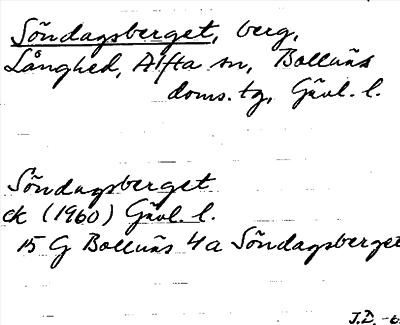 Söndagsberget, berg,
Långhed, Alfta sn, Bollnäs
doms. tg, Gävl. l.
Söndagsberget
ek (1960) Gävl. l.
15 G Bollnäs 4a Söndagsberget
J.D. -6